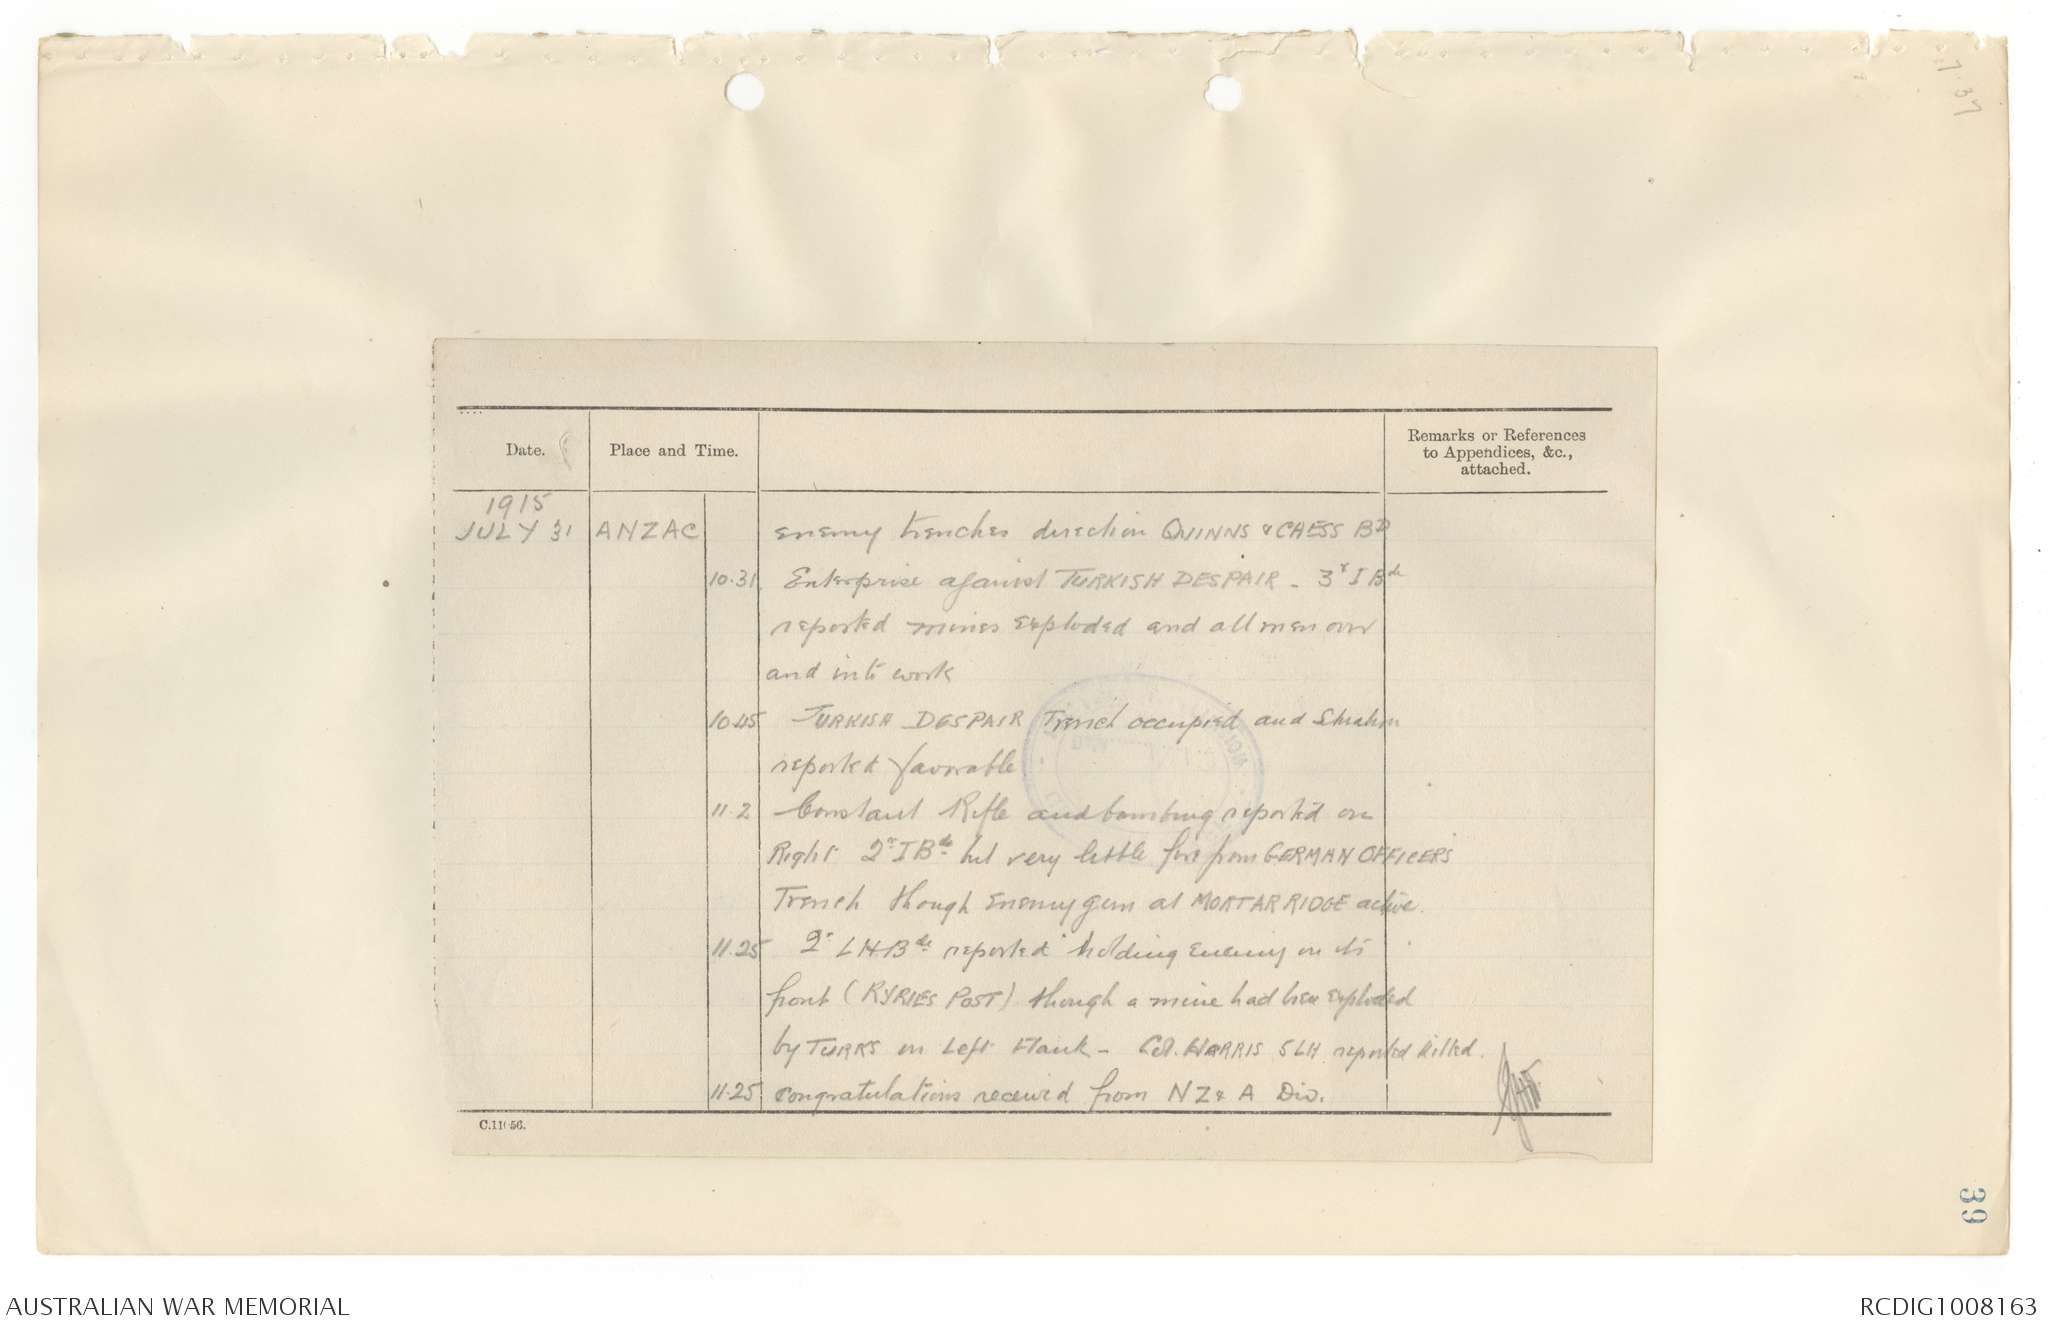 7.37
Date.
Place and Time.
Remarks or References
to Appendices, &c.,
attached.
1915
JULY 31 ANZAC enemy trenches direction QUINNS & CHESS BD
10.31 Enterprise against TURKISH DESPAIR - 3r I Bde
reported mines exploded and all men over
and into work
10.45 TURKISH DESPAIR Trench occupied and
reported favorable
11.2 Constant Rifle and bombing reported on
Right 2r I Bde but very little fire from GERMAN OFFICERS
Trench though enemy gun at MORTAR RIDGE active.
11.25 2r LHBde reported holding enemy on its
front (RYRIES POST) though a mine had been exploded
by TURKS on Left Flank - Col. HARRIS 5LH reported killed.
11.25 Congratulations received from NZ & A Div.
C.11056.
39
AUSTRALIAN WAR MEMORIAL
RCDIG1008163